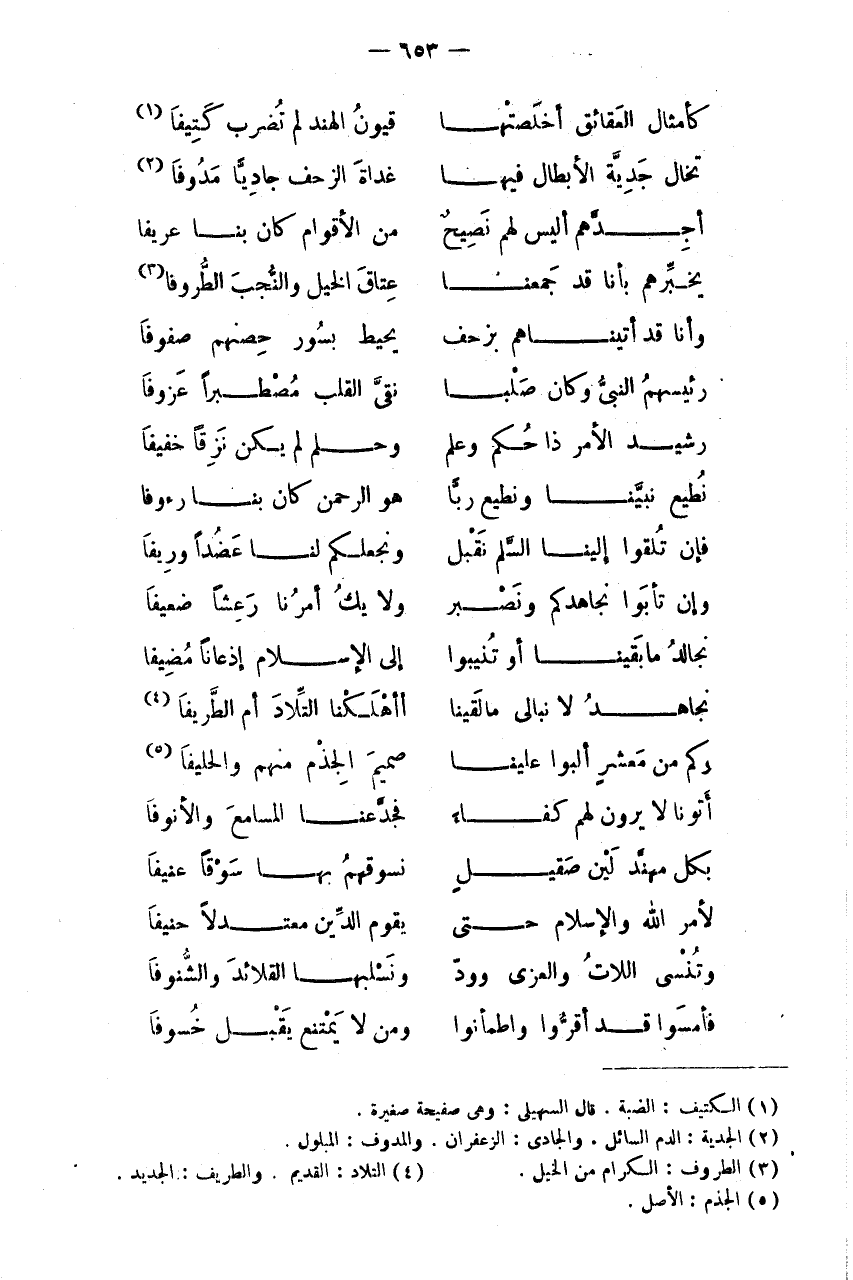 — ٦٥٣ —
كأمثال العَقائق أخلَصتْهـا قيونُ الهند لم تُضرب كَتِيفَا (١)
تخال جَديَّة الأبطال فيهـا غداةَ الزحف جادِيًّا مَدُوفَا (٢)
أجِدَّهم أليس لهم نَصِيحٌ من الأقوام كان بنا عريفا
يخبِّرهم بأنا قد جَمعنا عِتاقَ الخيل والنُّجبَ الطُّروفا (٣)
وأنا قد أتيناهم بزحف يحيط بسُور حِصنهم صفوفَا
رئيسهمُ النبىُّ وكان صَلْبا نقىَّ القلب مُصْطبراً عَزوفَا
رشيد الأمر ذا حُكم وعلم وحلم لم يكن نَزِقاً خفيفَا
نُطيع نبيَّنا ونطيع ربًّا هو الرحمن كان بنا رءوفا
فإن تُلقوا إلينا السَّلم نَقْبل ونجعلكم لنا عَضُداً ورِيفَا
وإن تأبَوا نجاهدكم ونَصْبر ولا يكُ أمرُنا رَعِشاً ضعيفَا
نجالدُ مابَقينا أو تُنيبوا إلى الإسلام إذعاناً مُضِيفا
نجاهدُ لا نبالى مالَقينا أأهْلَكْنا التِّلادَ أم الطَّريفَا (٤)
وكم من مَعشرٍ ألبوا علينا صميمَ الجِذْم منهم والحليفَا (٥)
أَتونا لا يرون لهم كفاء فجدَّعنا المسامعَ والأنوفَا
بكل مهنَّد لَيْن صَقيلٍ نسوقهمُ بها سَوْقاً عنيفَا
لأمر الله والإسلام حتى يقوم الدِّين معتدلاً حنيفَا
وتُنْسى اللاتُ والعزى وودّ ونَسْلبها القلائدَ والشُّنوفَا
فأمسَوا قد أقرُّوا واطمأنوا ومن لا يَمْتنع يَقْبل خُسوفَا
(١) الكتيف : الضبة . قال السهيلى : وهى صفيحة صغيرة .
(٢) الجدية : الدم السائل . والجادى : الزعفران . والمدوف : المبلول .
(٣) الطروف : الكرام من الخيل . (٤) التلاد : القديم . والطريف : الجديد .
(٥) الجذم : الأصل .